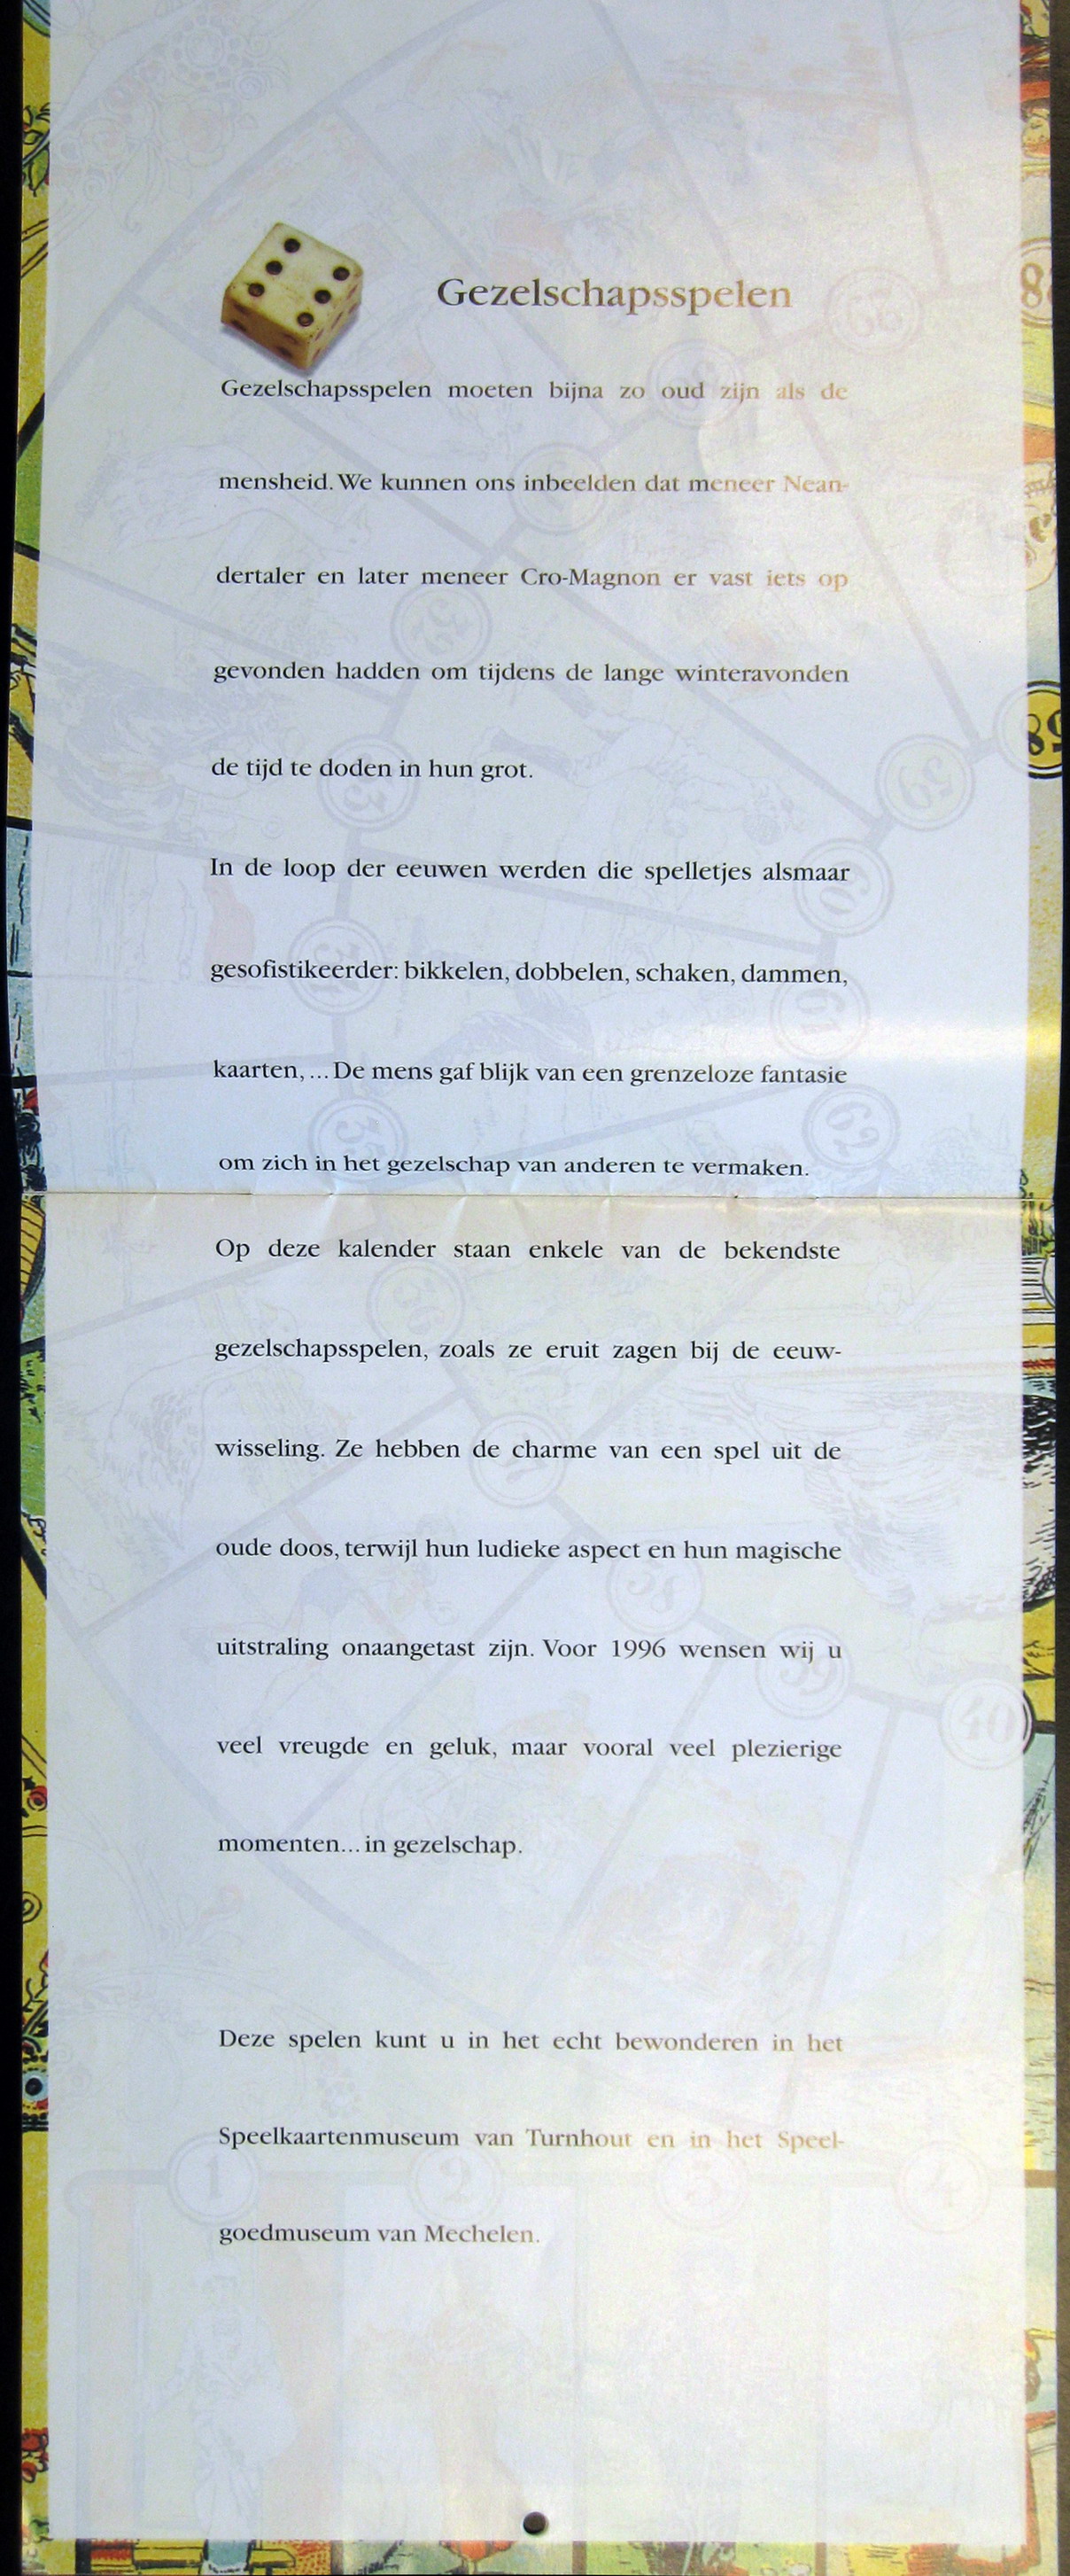 Gezelschapsspelen
Gezelschapsspelen moeten bijna zo oud zijn als de
mensheid. We kunnen ons inbeelden dat meneer Nean-
dertaler en later meneer Cro-Magnon er vast iets op
gevonden hadden om tijdens de lange winteravonden
de tijd te doden in hun grot.
In de loop der eeuwen werden die spelletjes alsmaar
gesofistikeerder: bikkelen, dobbelen, schaken, dammen,
kaarten, ... De mens gaf blijk van een grenzeloze fantasie
om zich in het gezelschap van anderen te vermaken.
Op deze kalender staan enkele van de bekendste
gezelschapsspelen, zoals ze eruit zagen bij de eeuw-
wisseling. Ze hebben de charme van een spel uit de
oude doos, terwijl hun ludieke aspect en hun magische
uitstraling onaangetast zijn. Voor 1996 wensen wij u
veel vreugde en geluk, maar vooral veel plezierige
momenten... in gezelschap.
Deze spelen kunt u in het echt bewonderen in het
Speelkaartenmuseum van Turnhout en in het Speel-
goedmuseum van Mechelen.